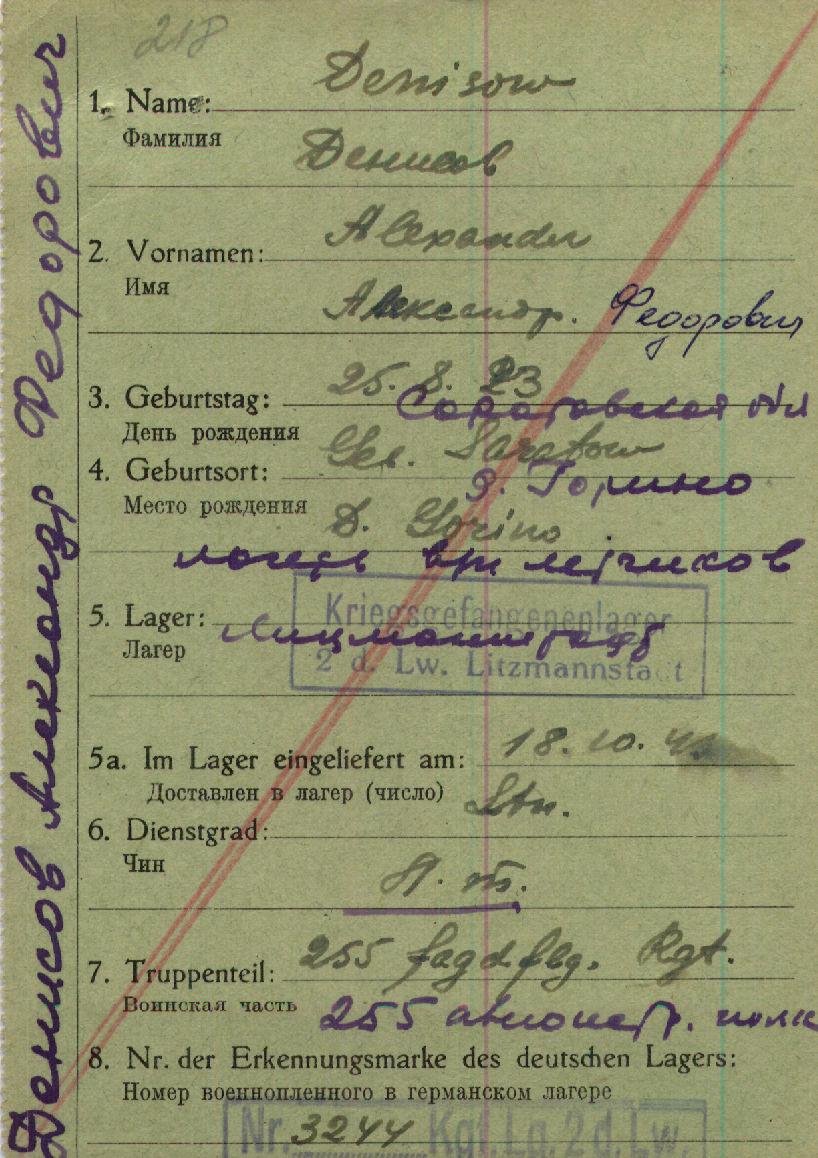 Денисов Александр Федорович
218
Denisow
1. Name:
Фамилия
Денисов
Alexander
2. Vornamen:
Имя
Александр. Федорович
25. 8. 23
3. Geburtstag:
Саратовская обл
День рождения
Geb. Saratow
4. Geburtsort:
д. Горино
Место рождения
D. Gorino
лагерь в/п летчиков
Kriegsgefangenenlager
5. Lager:
Лицманштадт
Лагер
2 d. Lw. Litzmannstadt
5a. Im Lager eingeliefert am: 18. 10.
Доставлен в лагер (число)
Ltn.
6. Dienstgrad:
Чин
Л. т.
255 Jagdflg. Rgt.
7. Truppenteil:
Воинская часть
255 авиоистр. полк
8. Nr. der Erkennungsmarke des deutschen Lagers:
Номер военнопленного в германском лагере
Nr. 3244 Kgf. Lg. 2 d. Lw.